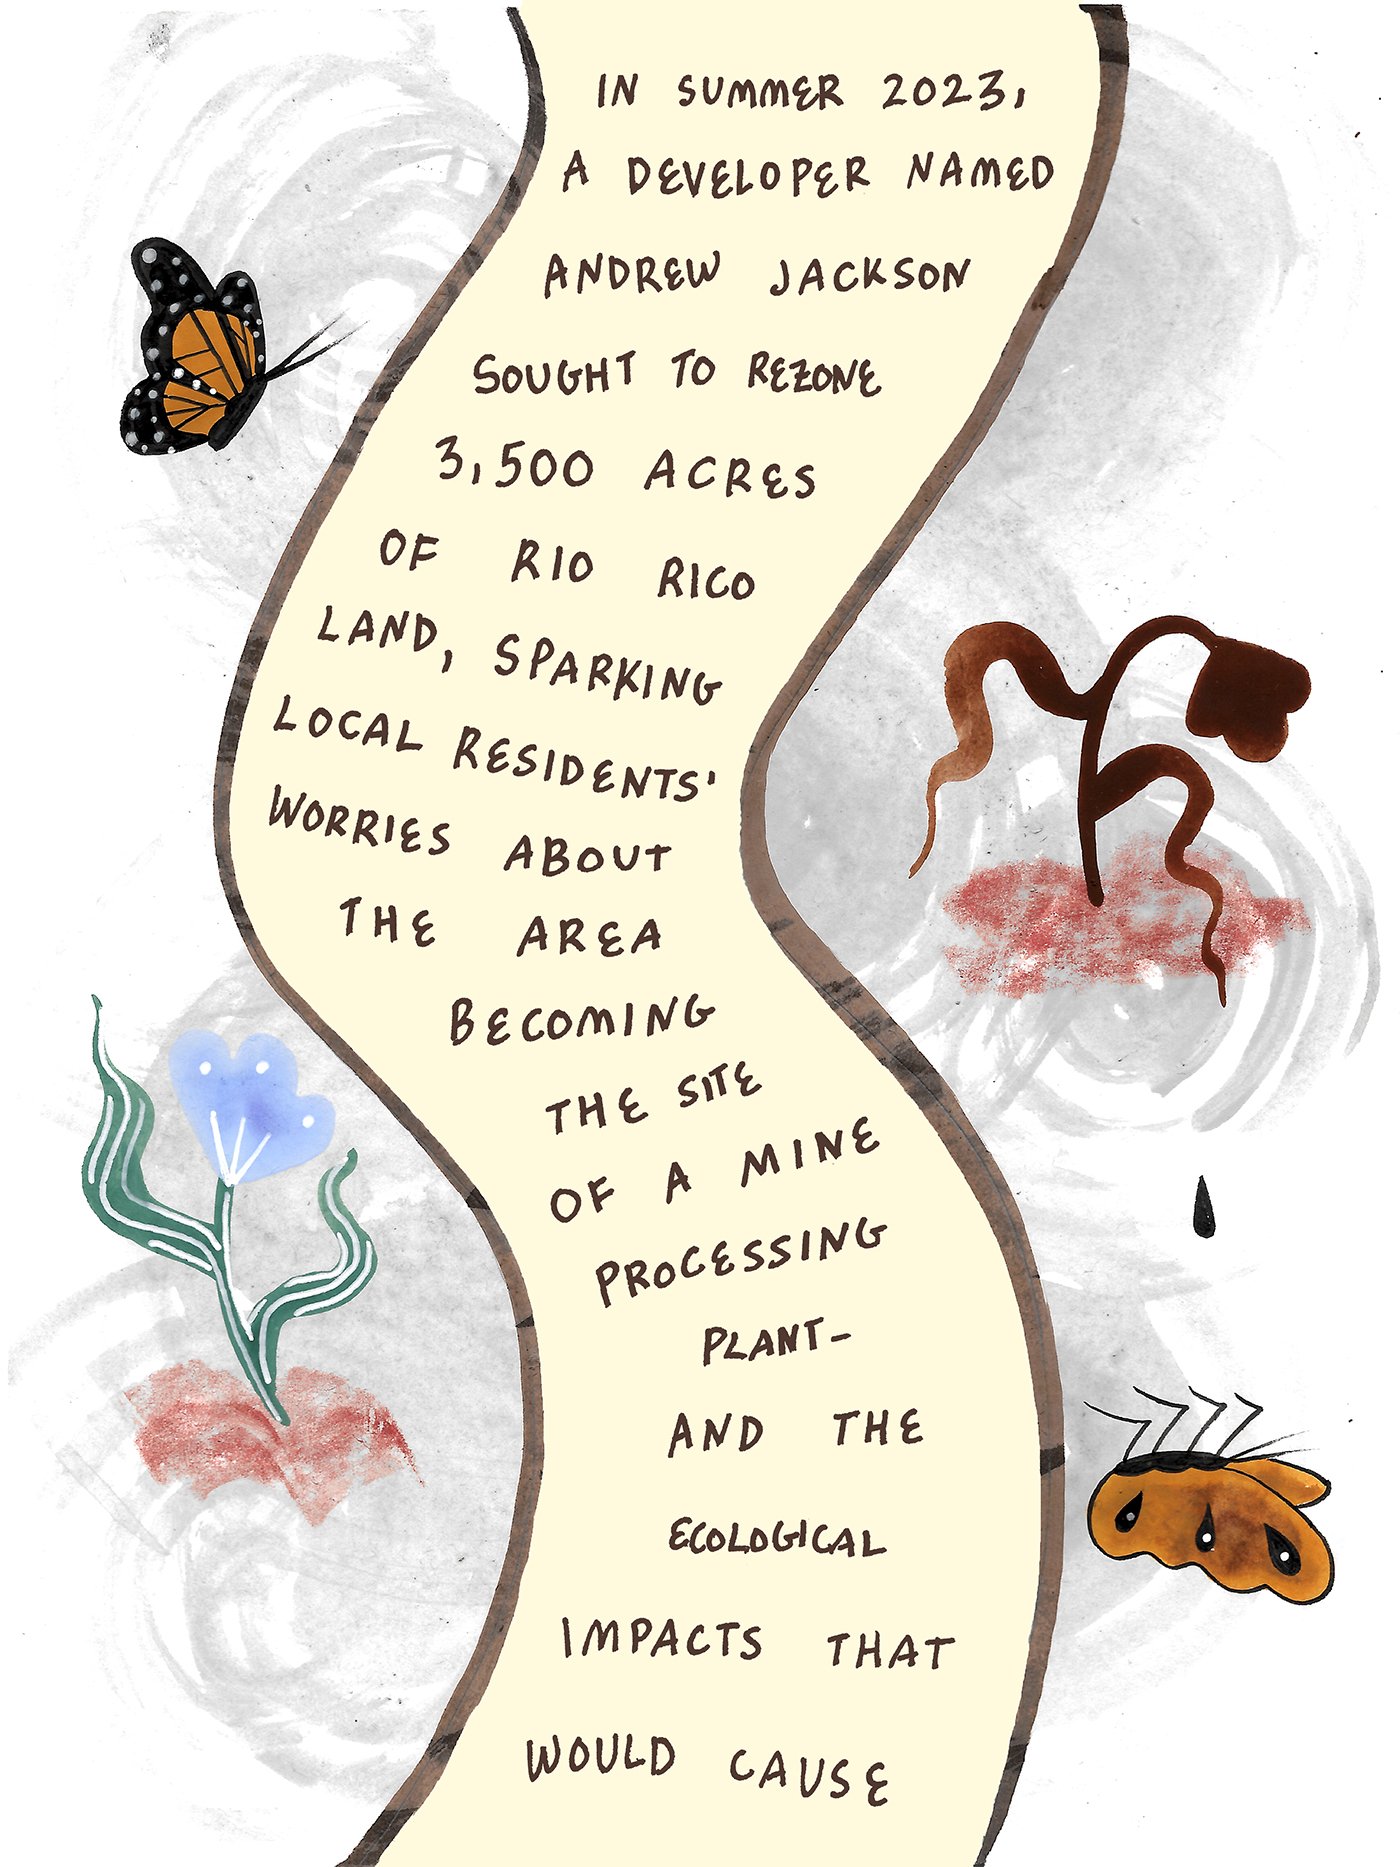 IN SUMMER 2023,
A DEVELOPER NAMED
ANDREW JACKSON
SOUGHT TO REZONE
3,500 ACRES
OF RIO RICO
LAND, SPARKING
LOCAL RESIDENTS'
WORRIES ABOUT
THE AREA
BECOMING
THE SITE
OF A MINE
PROCESSING
PLANT-
AND THE
ECOLOGICAL
IMPACTS THAT
WOULD CAUSE